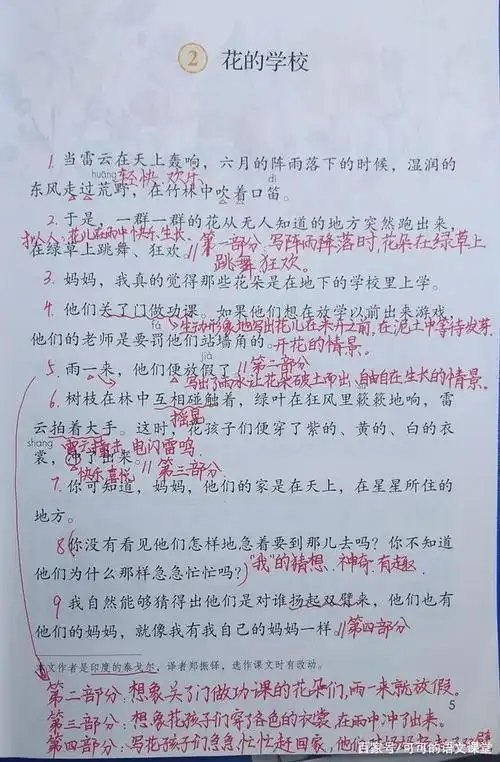 2 花的学校
1. 当雷云在天上轰响，六月的阵雨落下的时候，湿润的
huāng 轻快 欢乐 dí
东风走过荒野，在竹林中吹着口笛。
2. 于是，一群一群的花从无人知道的地方突然跑出来，
拟人：花儿在雨中快乐生长
在绿草上跳舞、狂欢。//第一部分：写阵雨降落时，花朵在绿草上
跳舞狂欢。
3. 妈妈，我真的觉得那些花朵是在地下的学校里上学。
4. 他们关了门做功课。如果他们想在放学以前出来游戏，
fá 生动形象地写出花儿在未开之前，在泥土中等待发芽、
他们的老师是要罚他们站墙角的。开花的情景。
jià
5. 雨一来，他们便放假了。//第二部分
写出了雨水让花朵破土而出、自由自在生长的情景。
6. 树枝在林中互相碰触着，绿叶在狂风里簌簌地响，雷
摇晃
云拍着大手。这时，花孩子们便穿了紫的、黄的、白的衣
shang 雷云撞击，电闪雷鸣
裳，冲了出来。
快乐喜悦 //第三部分
7. 你可知道，妈妈，他们的家是在天上，在星星所住的
地方。
8 你没有看见他们怎样地急着要到那儿去吗？你不知道
他们为什么那样急急忙忙吗？“我”的猜想 神奇 有趣
9 我自然能够猜得出他们是对谁扬起双臂来，他们也有
他们的妈妈，就像我有我自己的妈妈一样。//第四部分
本文作者是印度的泰戈尔，译者郑振铎，选作课文时有改动。
第二部分：想象关了门做功课的花朵们，雨一来就放假。
5
第三部分：想象花孩子们穿了各色的衣裳，在雨中冲了出来。
第四部分：写花孩子们急急忙忙赶回家，他们
百家号/可可的语文课堂